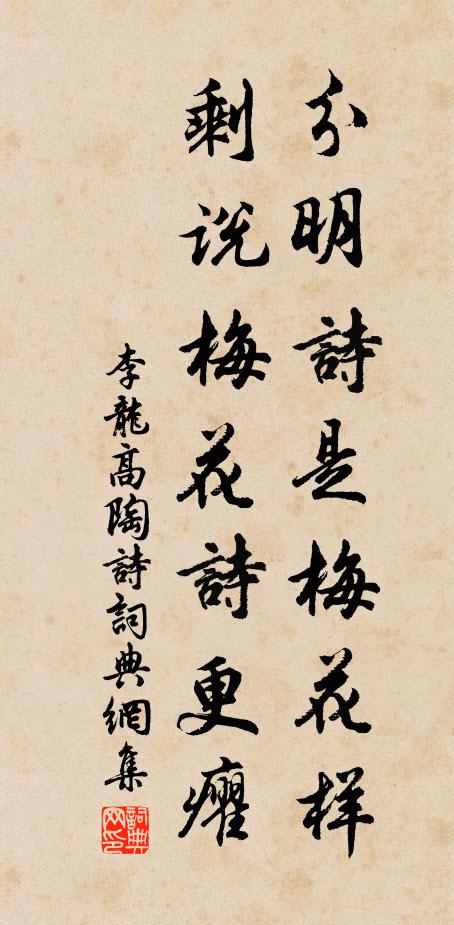 分明詩是梅花样
剩说梅花詩更癯
李龍高陶詩詞典網集
詞典网印